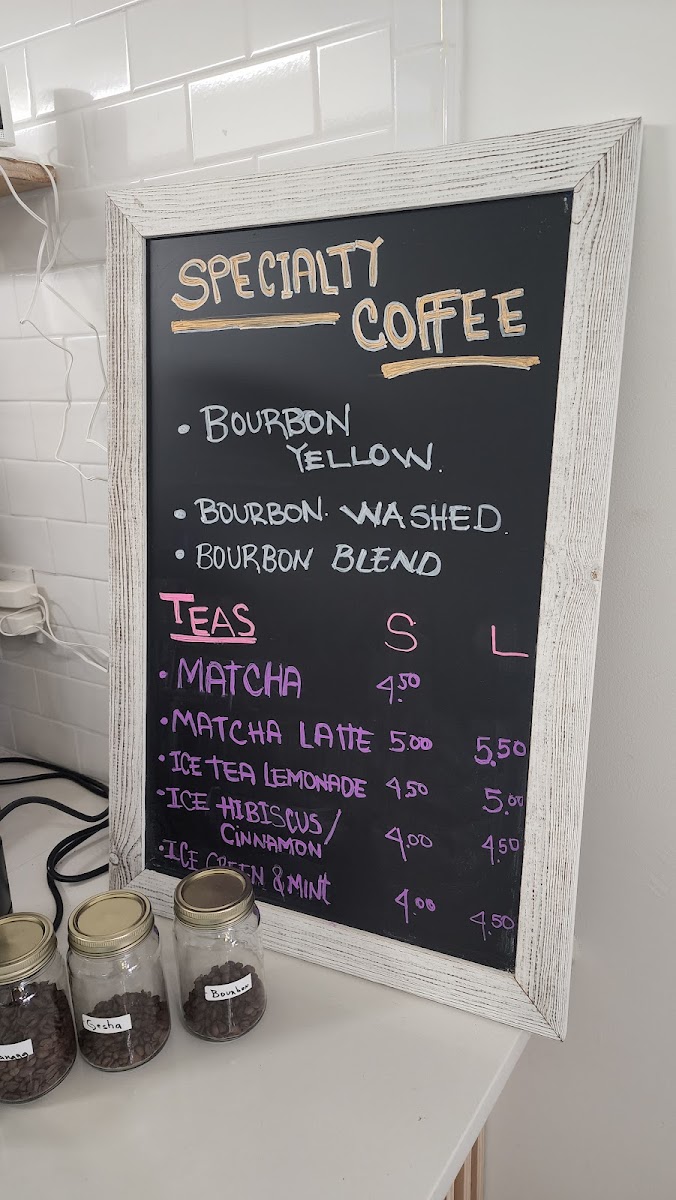 SPECIALTY
COFFEE
• BOURBON
YELLOW.
• BOURBON. WASHED.
• BOURBON BLEND
TEAS S L
• MATCHA 4.50
• MATCHA LATTE 5.00 5.50
• ICE TEA LEMONADE 4.50 5.00
• ICE HIBISCUS/
CINNAMON 4.00 4.50
• ICE GREEN & MINT 4.00 4.50
Gesha
Bourbon